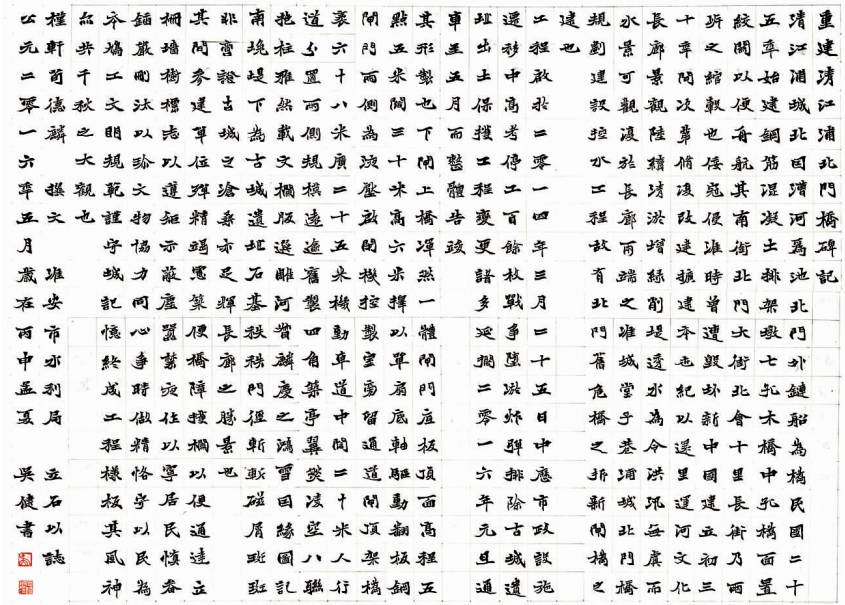 重建清江浦北門橋碑記
清江浦城北因漕河為池北門外鏈船為橋民國二十
五年始建鋼筋混凝土排架墩七孔木橋中孔橋面置
絞關以便舟航其南街北門大街北會十里長街乃兩
斯之綰轂也倭寇侵淮時曾遭毀壞新中國建立初三
十年間次葺脩復改建擴建本世紀以還里運河文化
長廊景觀陸續清淤增綠削堤透水為令洪汛無虞而
水景可觀復於長廊兩端之淮城堂子巷浦城北門橋
規劃建設控水工程故有北門舊危橋之拆新閘橋之
建也
工程啟於二零一四年三月二十五日中應市政設施
遷移中高考停工百餘枚戰爭墮淤炸彈排除古城遺
址出土保護工程變更諸多延擱二零一六年元旦通
車至五月而整體告竣
其形製也下閘上橋渾然一體閘門底板頂面高程五
點五米闊三十米高六米擇以單扇底軸驅動翻板鋼
閘門兩側為液壓啟閉機控製室旁留通道閘頂架橋
袤六十八米廣二十五米機動車道中間二十米人行
道分置兩側規模遠邁舊製四角築亭翼然凌空八聯
抱柱雅然載文欄版選雕河督麟慶之鴻雪因緣圖記
南堍堤下為古城遺址石基秩秩門徑斬斬磁屑斑斑
非啻證古城之滄桑亦足暉長廊之勝景也
其間參建單位殫精竭慮築便橋障護欄以便通達立
柵墻樹標志以遵矩示蔽塵囂以寧居民慎
嚴剛汰以珍文物協力同心爭時做精恪守以民為
本工文明規範謹守城記憶終成工程樣板其風神
共千秋之大觀也
程軒荀德麟 撰文 淮安市水利局 立石以誌
公元二零一六年五月歲在丙申孟夏 吳健書